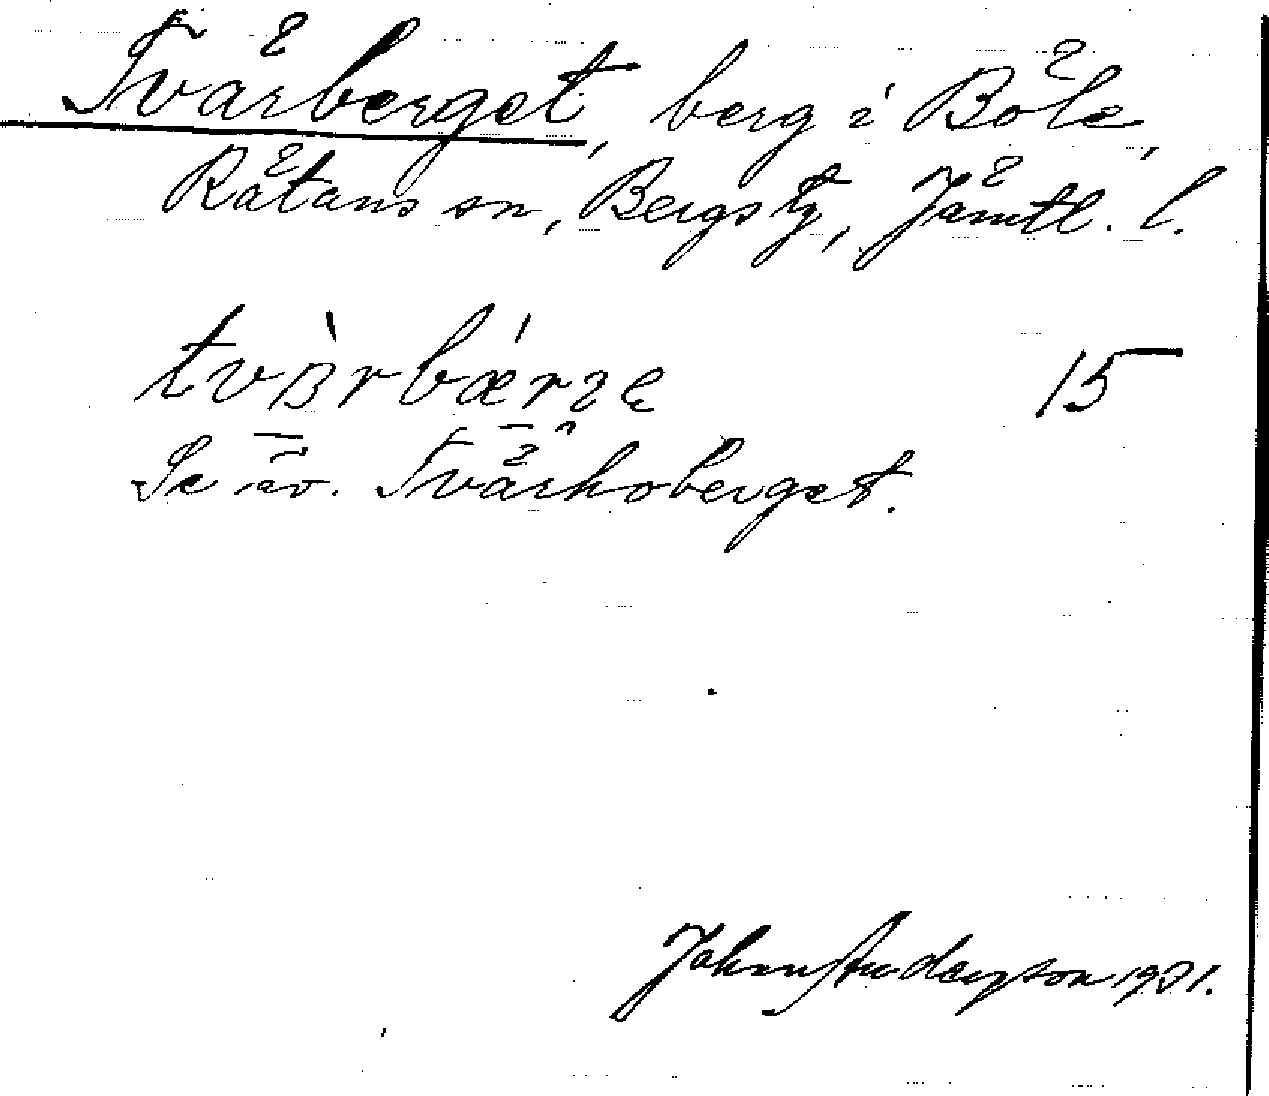 Tvärberget, berg i Böle,
Rätans sn, Bergs tg, Jämtl. l.
15
Se äv. Tvärhoberget.
John Andersson 1931.